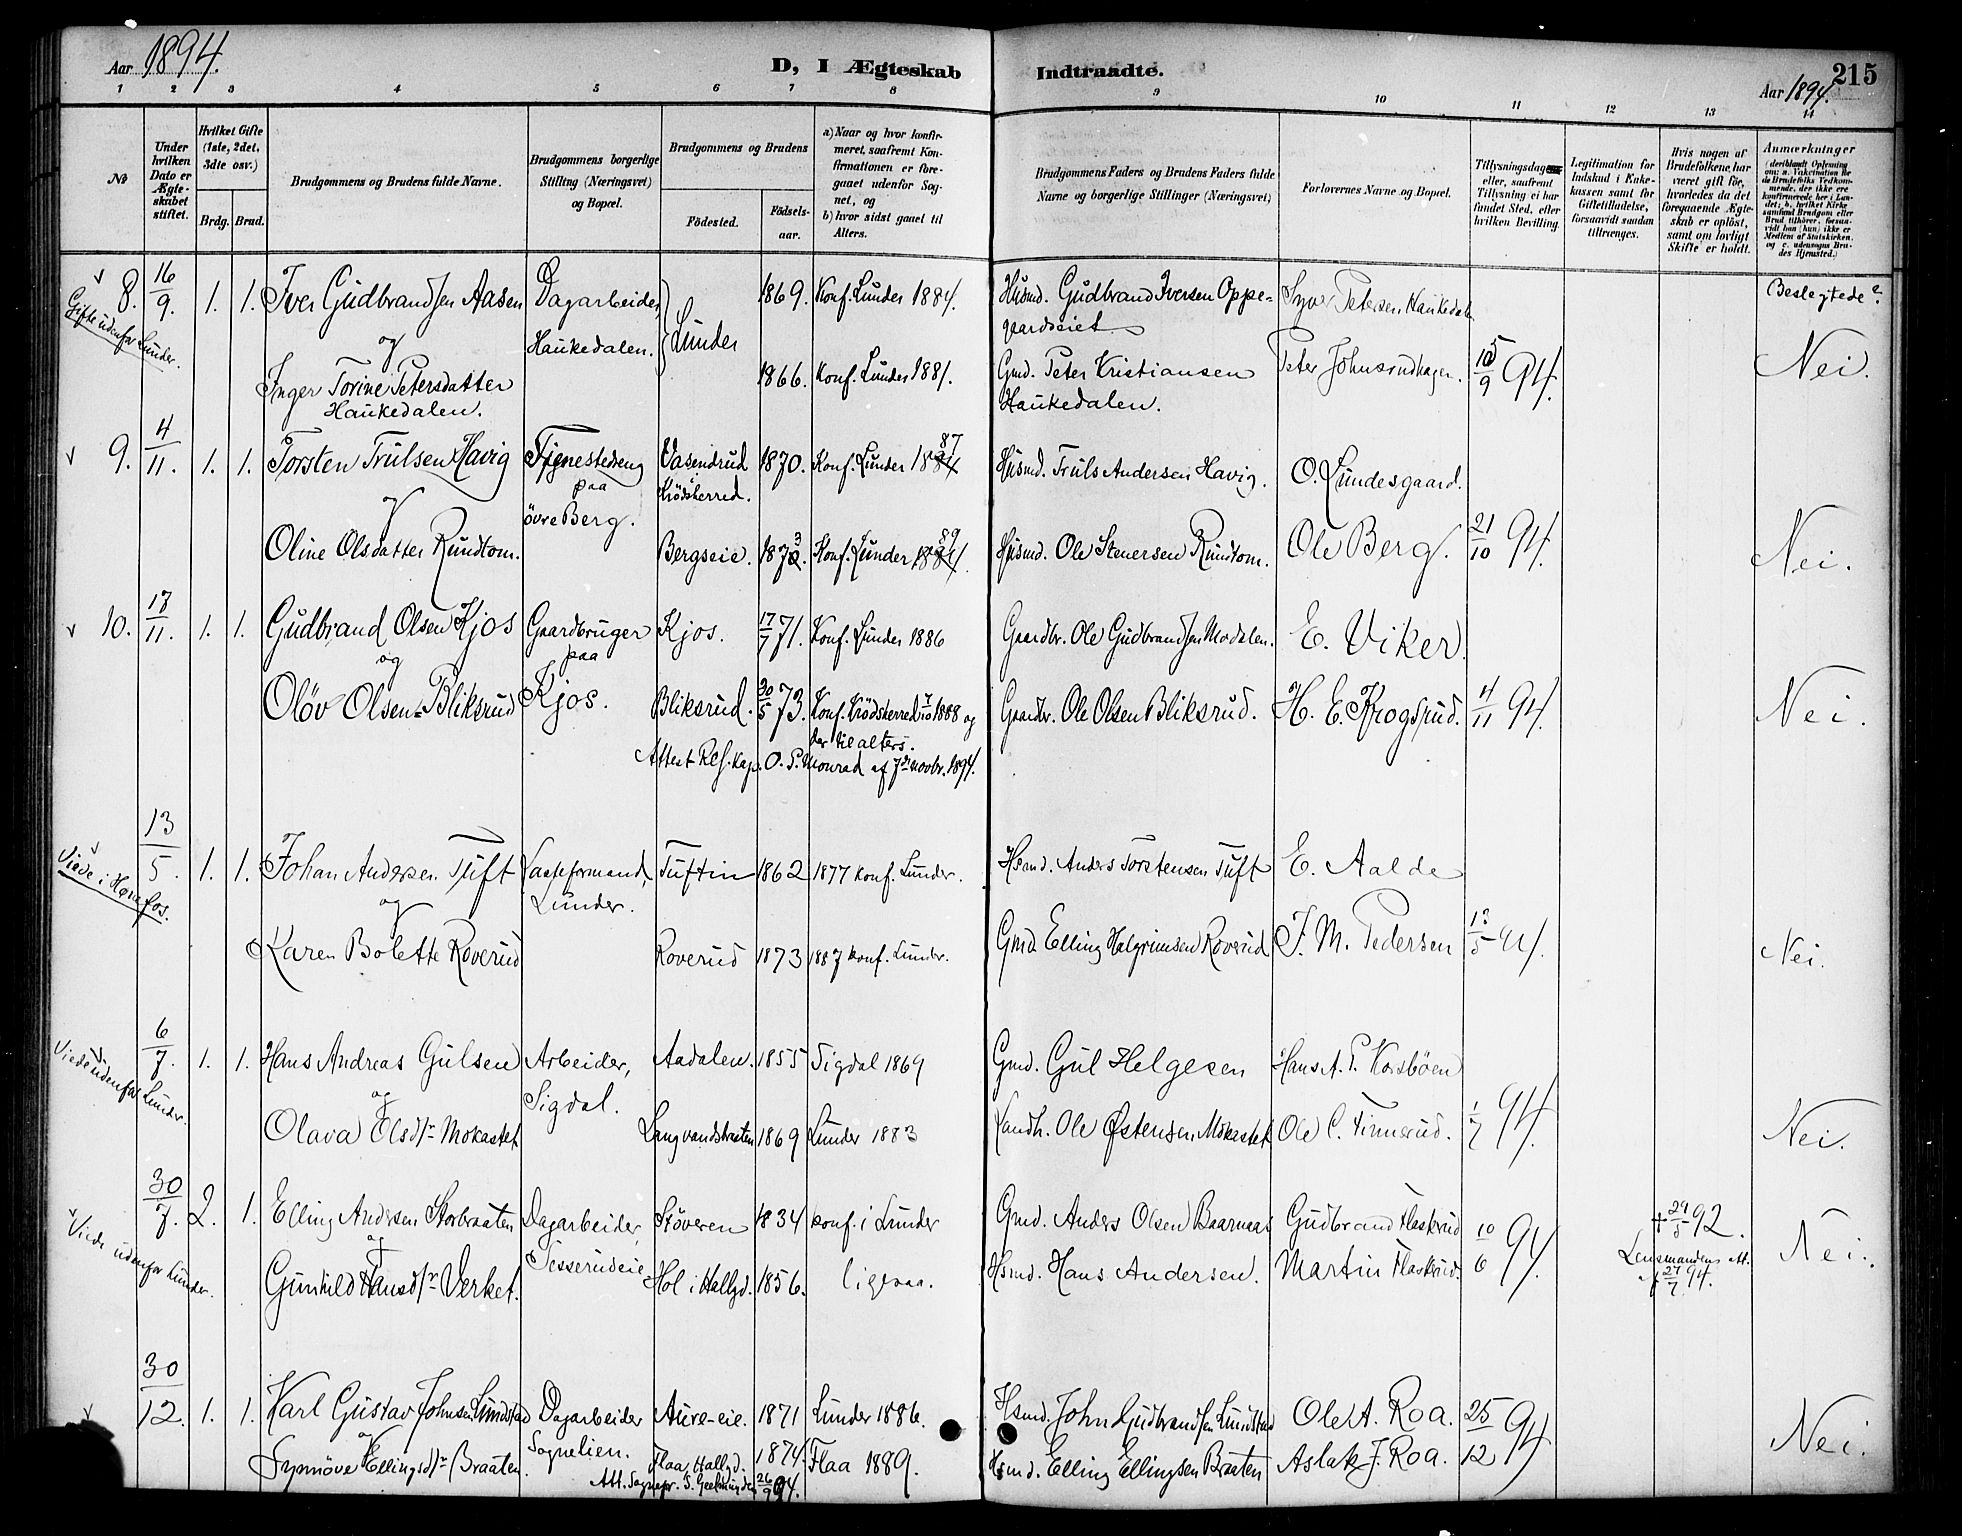 Aar 1894.
D, I Ægteskab
Indtraadte.
215
Aar 1894.
1 2 3 4 5 6 7 8 9 10 11 12 13 14
No
Under hvilken Dato er Ægteskabet stiftet.
Hvilket Gifte (1ste, 2det, 3die osv.)
Brdg. Brud.
Brudgommens og Brudens fulde Navne.
Brudgommens borgerlige Stilling (Næringsvei) og Bopæl.
Brudgommens og Brudens
Födested.
Födselsaar.
a) Naar og hvor konfirmeret, saafremt Konfirmationen er foregaaet udenfor Sognet, og
b) hvor sidst gaaet til Alters.
Brudgommens Faders og Brudens Faders fulde Navne og borgerlige Stillinger (Næringsvei)
Forlovernes Navne og Bopæl.
Tillysningsdagene eller, saafremt Tillysning ei har fundet Sted, efter hvilken Bevilling.
Legitimation for Indskud i Enkekassen samt for Giftetilladelse, forsaavidt saadan tiltrænges.
Hvis nogen af Brudefolkene har været gift før, hvorledes da det foregaaende Ægteskab er oplöst, samt om lovligt Skifte er holdt.
Anmærkninger
Gifte udenfor Lunder.
8. 16/9. 1. 1. Iver Gudbrandsen Aasen Dagarbeider, 1869. Konf. Lunder 1884. Husmd. Gudbrand Iversen Oppegaardseiet Syver Petersen Haukedalen Beslegtede?
og Haukedalen. Lunder
Inger Torine Petersdatter Haukedalen. 1866. Konf. Lunder 1881. Gmd. Peter Kristiansen Haukedalen. Peter 94. Nei.
9. 4/11. 1. 1. Torsten Trulsen Havig Tjenestedreng paa øvre Berg. Vasendrud Krødsherred. 1870. Konf. Lunder 1887 Husmd. Truls Andersen Havig. O. Lundesgaard.
og
Oline Olsdatter Rundtom. Bergseie. 1873. Konf. Lunder 1889 Husmd. Ole Stenersen Rundtom. Ole Berg. 21/10 94. Nei.
10. 17/11. 1. 1. Gudbrand Olsen Kjos Gaardbruger paa Kjos. Kjos. 17/7 71. Konf. Lunder 1886 Gaardbr. Ole Gudbrandsen Modalen. E. Viker.
og
Oløv Olsen Bliksrud Bliksrud. 30/5 73. Konf. Krødsherred 7/10 1888 og der til alters. Gaardbr. Ole Olsen Bliksrud. H. E. Krogsrud. 4/11 94. Nei.
Attest Res. kap. O. P. Monrad af 7de novbr. 1894.
Viede i Hønefos.
13/5. 1. 1. Johan Andersen Tuft Lunder. Tuftin 1862 1877 konf. Lunder. Hsmd. Anders Torstensen Tuft E. Aalde
og
Karen Bolette Roverud Roverud 1873 1887 konf. Lunder. Gmd Elling Halgrimsen Roverud J. M. Pedersen 13/5 94. Nei.
Viede udenfor Lunder.
6/7. 1. 1. Hans Andreas Gulsen Arbeider, Sigdal. Aadalen. 1855 Sigdal 1869 Gmd. Gul Helgesen Hans A. P. Korsbøen
og
Olava Olsd/r Mokastet Langvandsbraaten 1869 Lunder 1883 Landh. Ole Østensen Mokastet Ole C. Finnerud. 1/7 94. Nei.
Viede udenfor Lunder.
30/7. 2. 1. Elling Andersen Storbraaten Dagarbeider, Tesserudeie Støveren 1834 konf. i Lunder Gmd. Anders Olsen Baarnaas Gudbrand Flaskrud 10/6 94. † 29/5 92. Nei.
og
Gunhild Hansd/r Verket. Hol i Hallgd. 1856. ligesaa. Hsmd. Hans Andersen. Martin Flaskrud. Lensmandens att. af 27/7 94.
30/12. 1. 1. Karl Gustav Johnsen Lundstad Dagarbeider Sognelien. Aure-eie. 1871 Lunder 1886. Hsmd. John Gudbrandsen Lundstad Ole A. Roa. 25/12 94 Nei.
og
Synnöve Ellingsd/r Braaten. Flaa, Hallgd. 1874. Flaa 1889. Hsmd. Elling Ellingsen Braaten Aslak J. Roa.
Att. Sognepr. S. Geelmuyden 26/9 94.